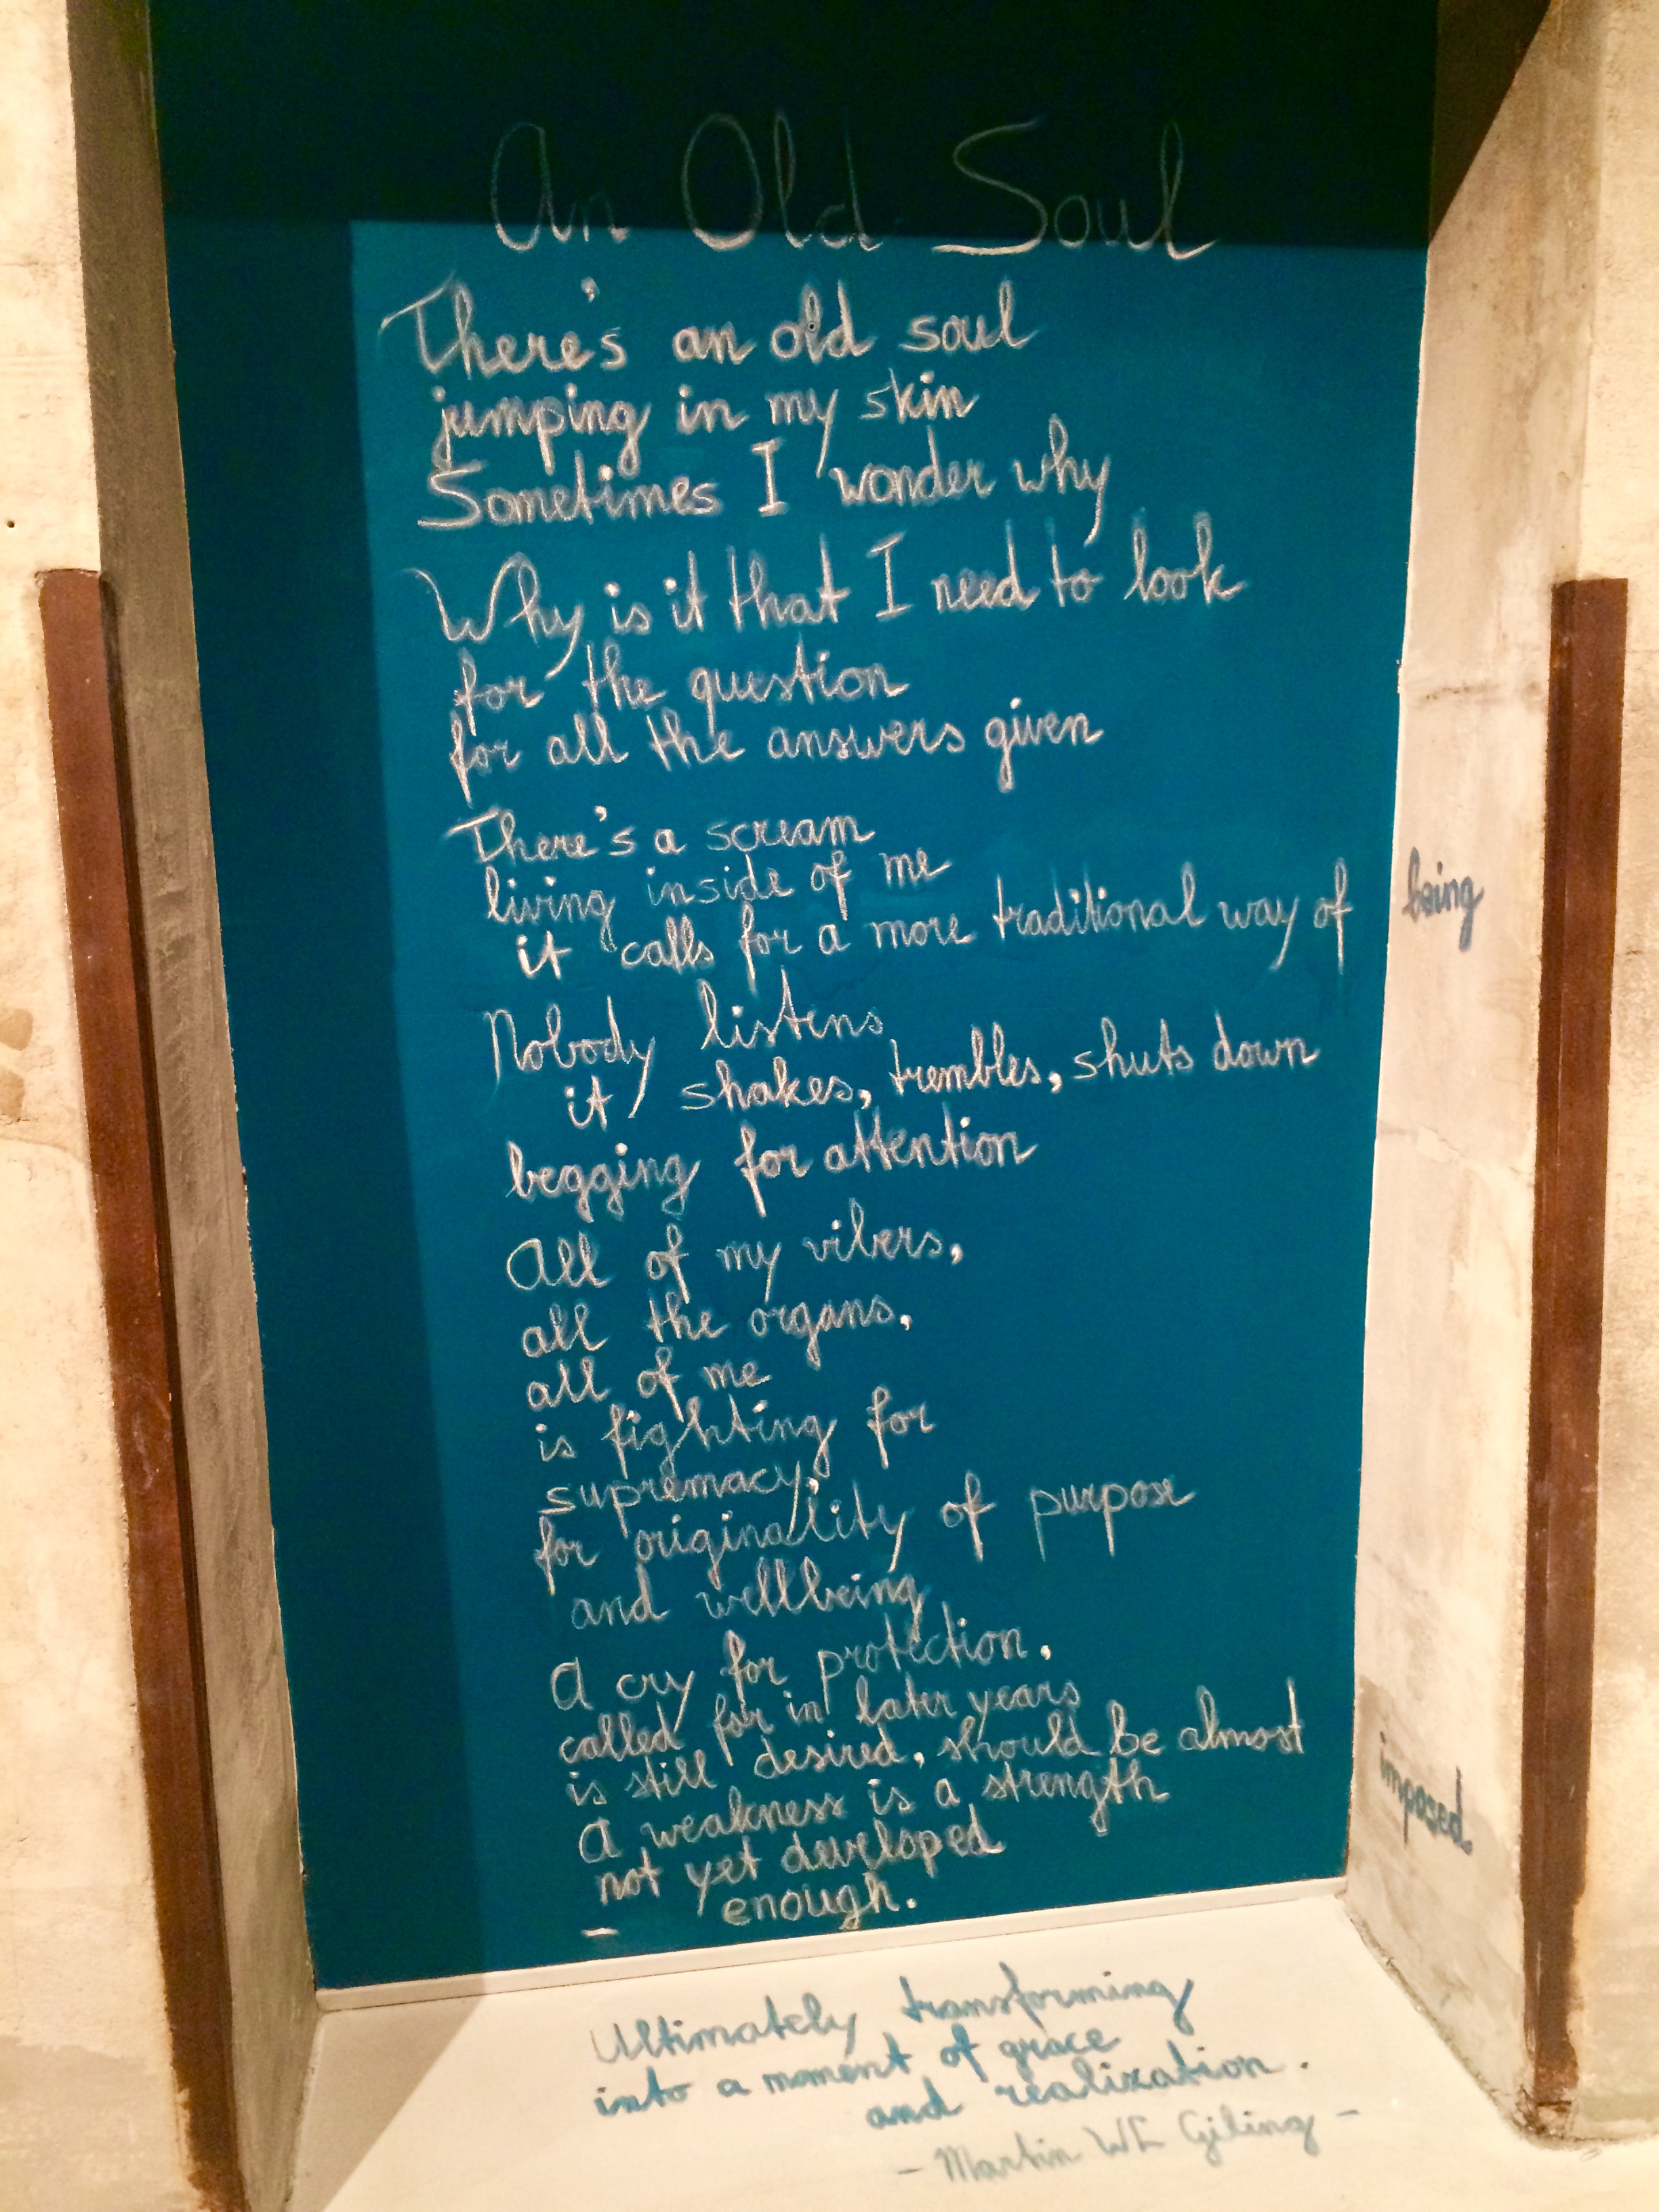 An Old Soul
There's an old soul
jumping in my skin
Sometimes I wonder why
Why is it that I need to look
for the question
for all the answers given
There's a scream
living inside of me
it calls for a more traditional way of being
Nobody listens
it shakes, trembles, shuts down
begging for attention
All of my vibers,
all the organs,
all of me
is fighting for
supremacy,
for originality of purpose
and wellbeing
A cry for protection,
called for in later years
is still desired, should be almost imposed.
A weakness is a strength
not yet developed
enough.
Ultimately transforming
into a moment of grace
and realization.
- Martin WL Giling -